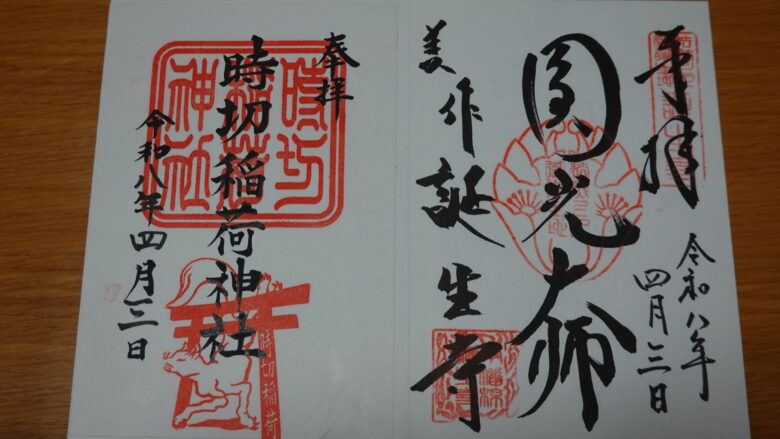 奉拝
令和八年
四月三日
圓光大師
美作誕生寺
奉拝
時切稲荷神社
令和八年四月三日
時切
神社
時切稲荷